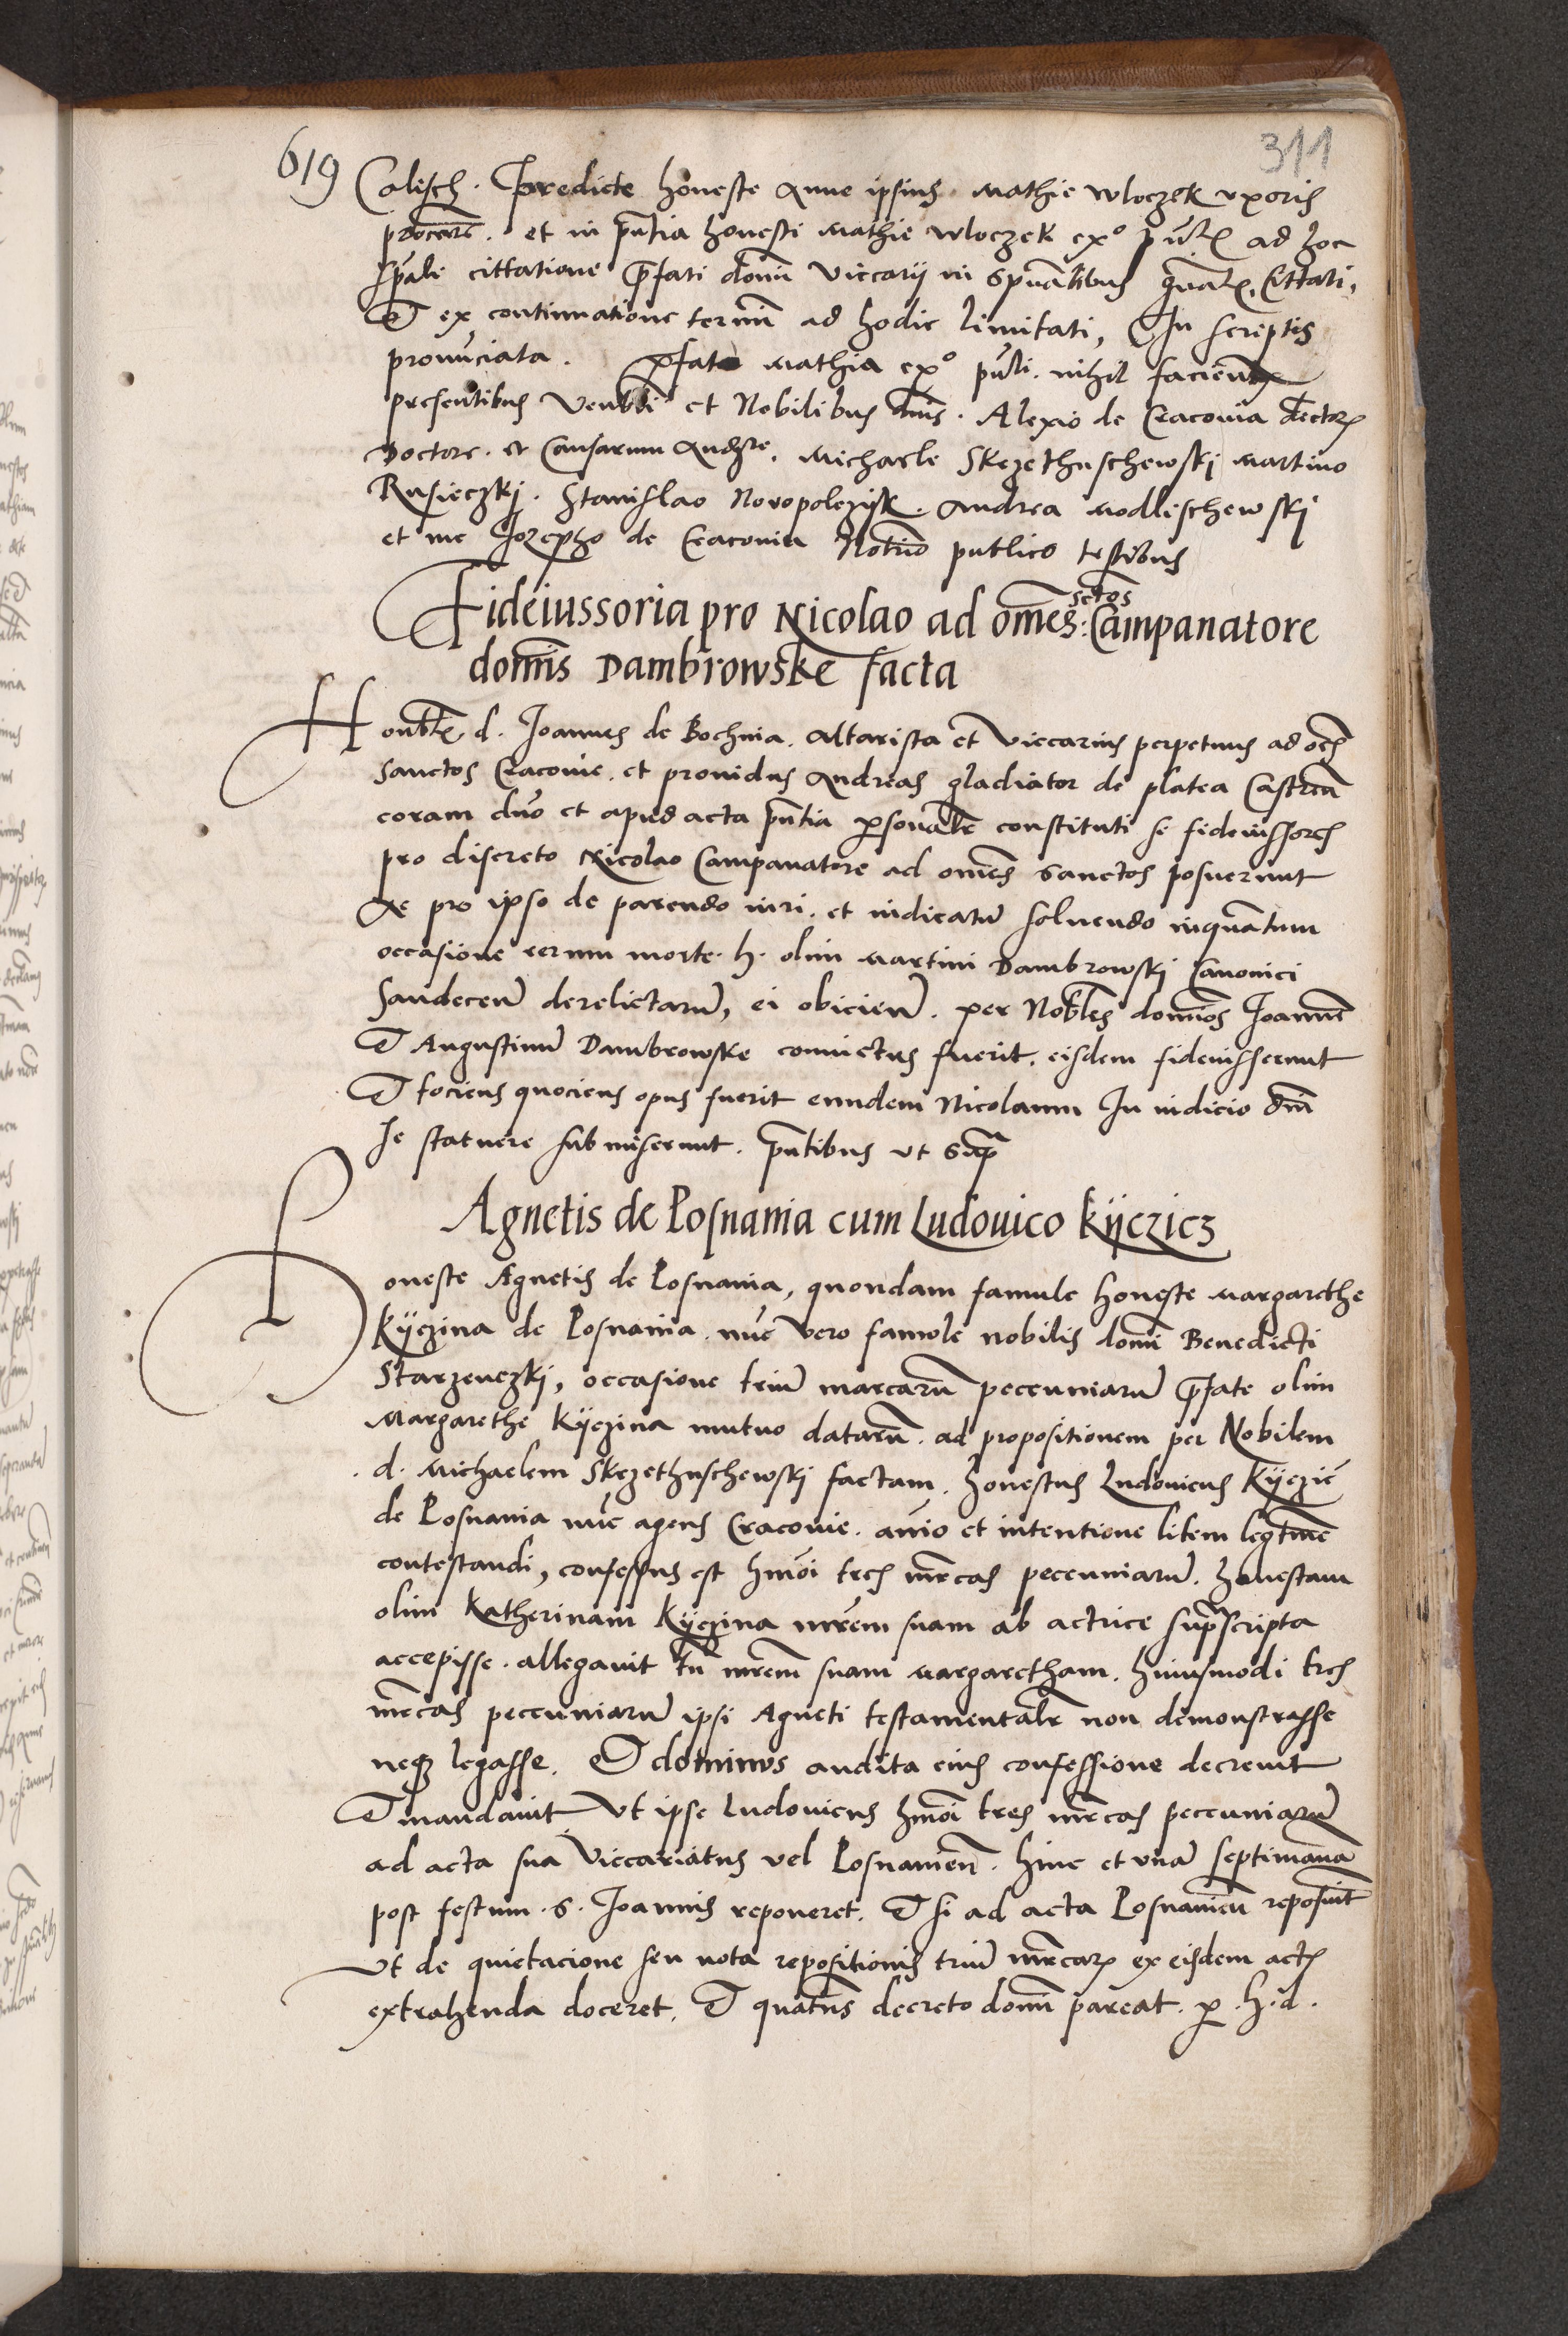 619
311
Calisch. predicte honeste Anne ipsius Mathie Wloczek uxoris
procure. et in pñtia honesti Mathie Wloczek exº ad hoc
spali cittatione p̃fati domĩ Viccarij in spũalibus Cittati,
Et ex continuatione termĩ ad hodie limitati, In scriptis
pronũciata. p̃fato Mathia exº nihil facieñ
presentibus Venbli et Nobilibus dñis. Alexio de Cracovia
Doctore. et Causarum Michaele Skezethuschewskj Martino
Rusieczkj. Stanislao Novopolczijk. Andrea Modlischewskj
et me Jozepho de Cracovia Notrio publico testibus
Fideiussoria pro Nicolao ad om̃es sctos Campanatore
domĩs Dambrowske facta
Honbłs d. Joannes de Bochnia. Altarista et Viccarius perpetuus ad oẽs
Sanctos Cracovie. et providus Andreas gladiator de platea Castreñ
coram dño et apud acta pñtia p̱sonałr constituti se fideiussores
pro discreto Nicolao Campanatore ad om̃es Sanctos posuerunt
Ac pro ipso de parendo iuri. et iudicatũ solvendo inquãtum
occasione rerum morte. h. olim Martini Dambrowskj Canonici
Sandeceñ derelictarũ, ei obicieñ. per Nobłes dominos Joannẽ
Et Augustinũ Dambrowske convictus fuerit. eisdem fideiusserunt
Et tociens quociens opus fuerit eundem Nicolaum In iudicio dñi
se statuere submiserunt. pñtibus ut Supra
Agnetis de Posnania cum Ludovico Kijczicz
Honeste Agnetis de Posnania, quondam famule honeste Margarethe
Kijczina de Posnania. nũc vero famole nobilis domĩ Benedicti
Starzenezkj, occasione triũ marcarũ peccuniarũ p̃fate olim
Margarethe Kijczina mutuo datarũ. ad propositionem per Nobilem
d. Michaelem Skezethuschewskj factam. honestus Ludovicus Kijczic̃
de Posnania nũc agens Cracovie. anĩo et intentione litem legitime
contestandi, confessus est hmõi tres mrcas peccuniarũ. honestam
olim Katherinam Kijczina mr̃em suam ab actrice supra scripta
accepisse. allegavit tñ mr̃em suam Margaretham. huiusmodi tres
mrcas peccuniarũ ipsi Agneti testamentałr non demonstrasse
neqȝ legasse. Et dominus audita eius confessione decrevit
Et mandavit Ut ipse Ludovicus hmõi tres mrcas peccuniarũ
ad acta sua Viccariatus vel Posnanieñ. hinc et unã septimanã
post festum. S. Joannis reponeret. Et si ad acta Posnanieñ reposuit
Ut de quietacione seu nota repositionis triũ mrcarꝝ ex eisdem actis
extrahenda doceret. Et quatñs decreto domĩ pareat. p̱. h. d.